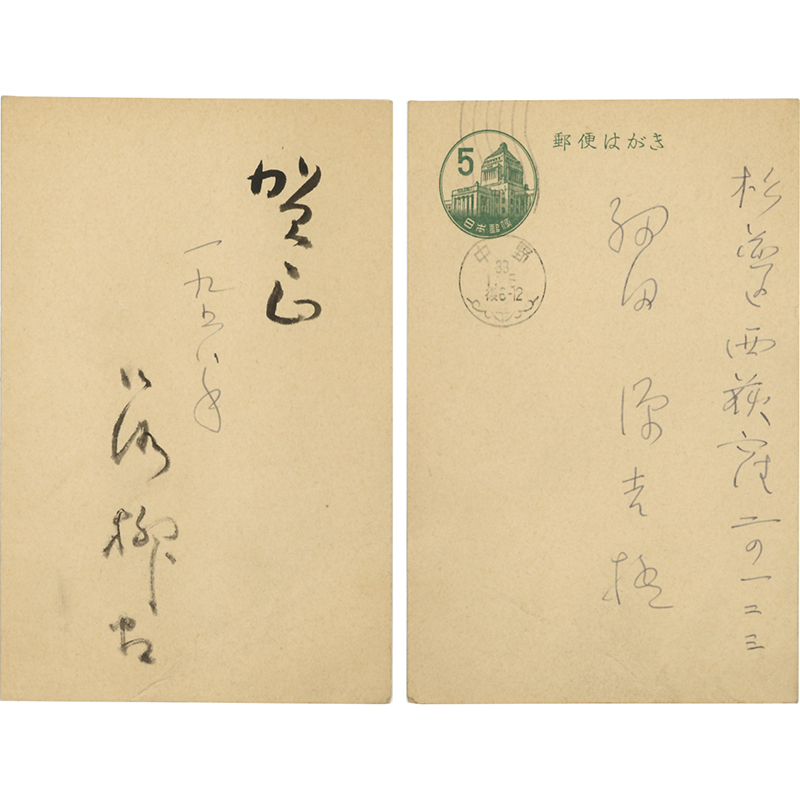 賀正
一九五八年
柳
郵便はがき
5
日本郵便
中野
33
後6-12
杉並区西荻窪二の一二三
細田源吉様